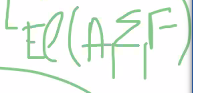 L EC(A, Σ, F)